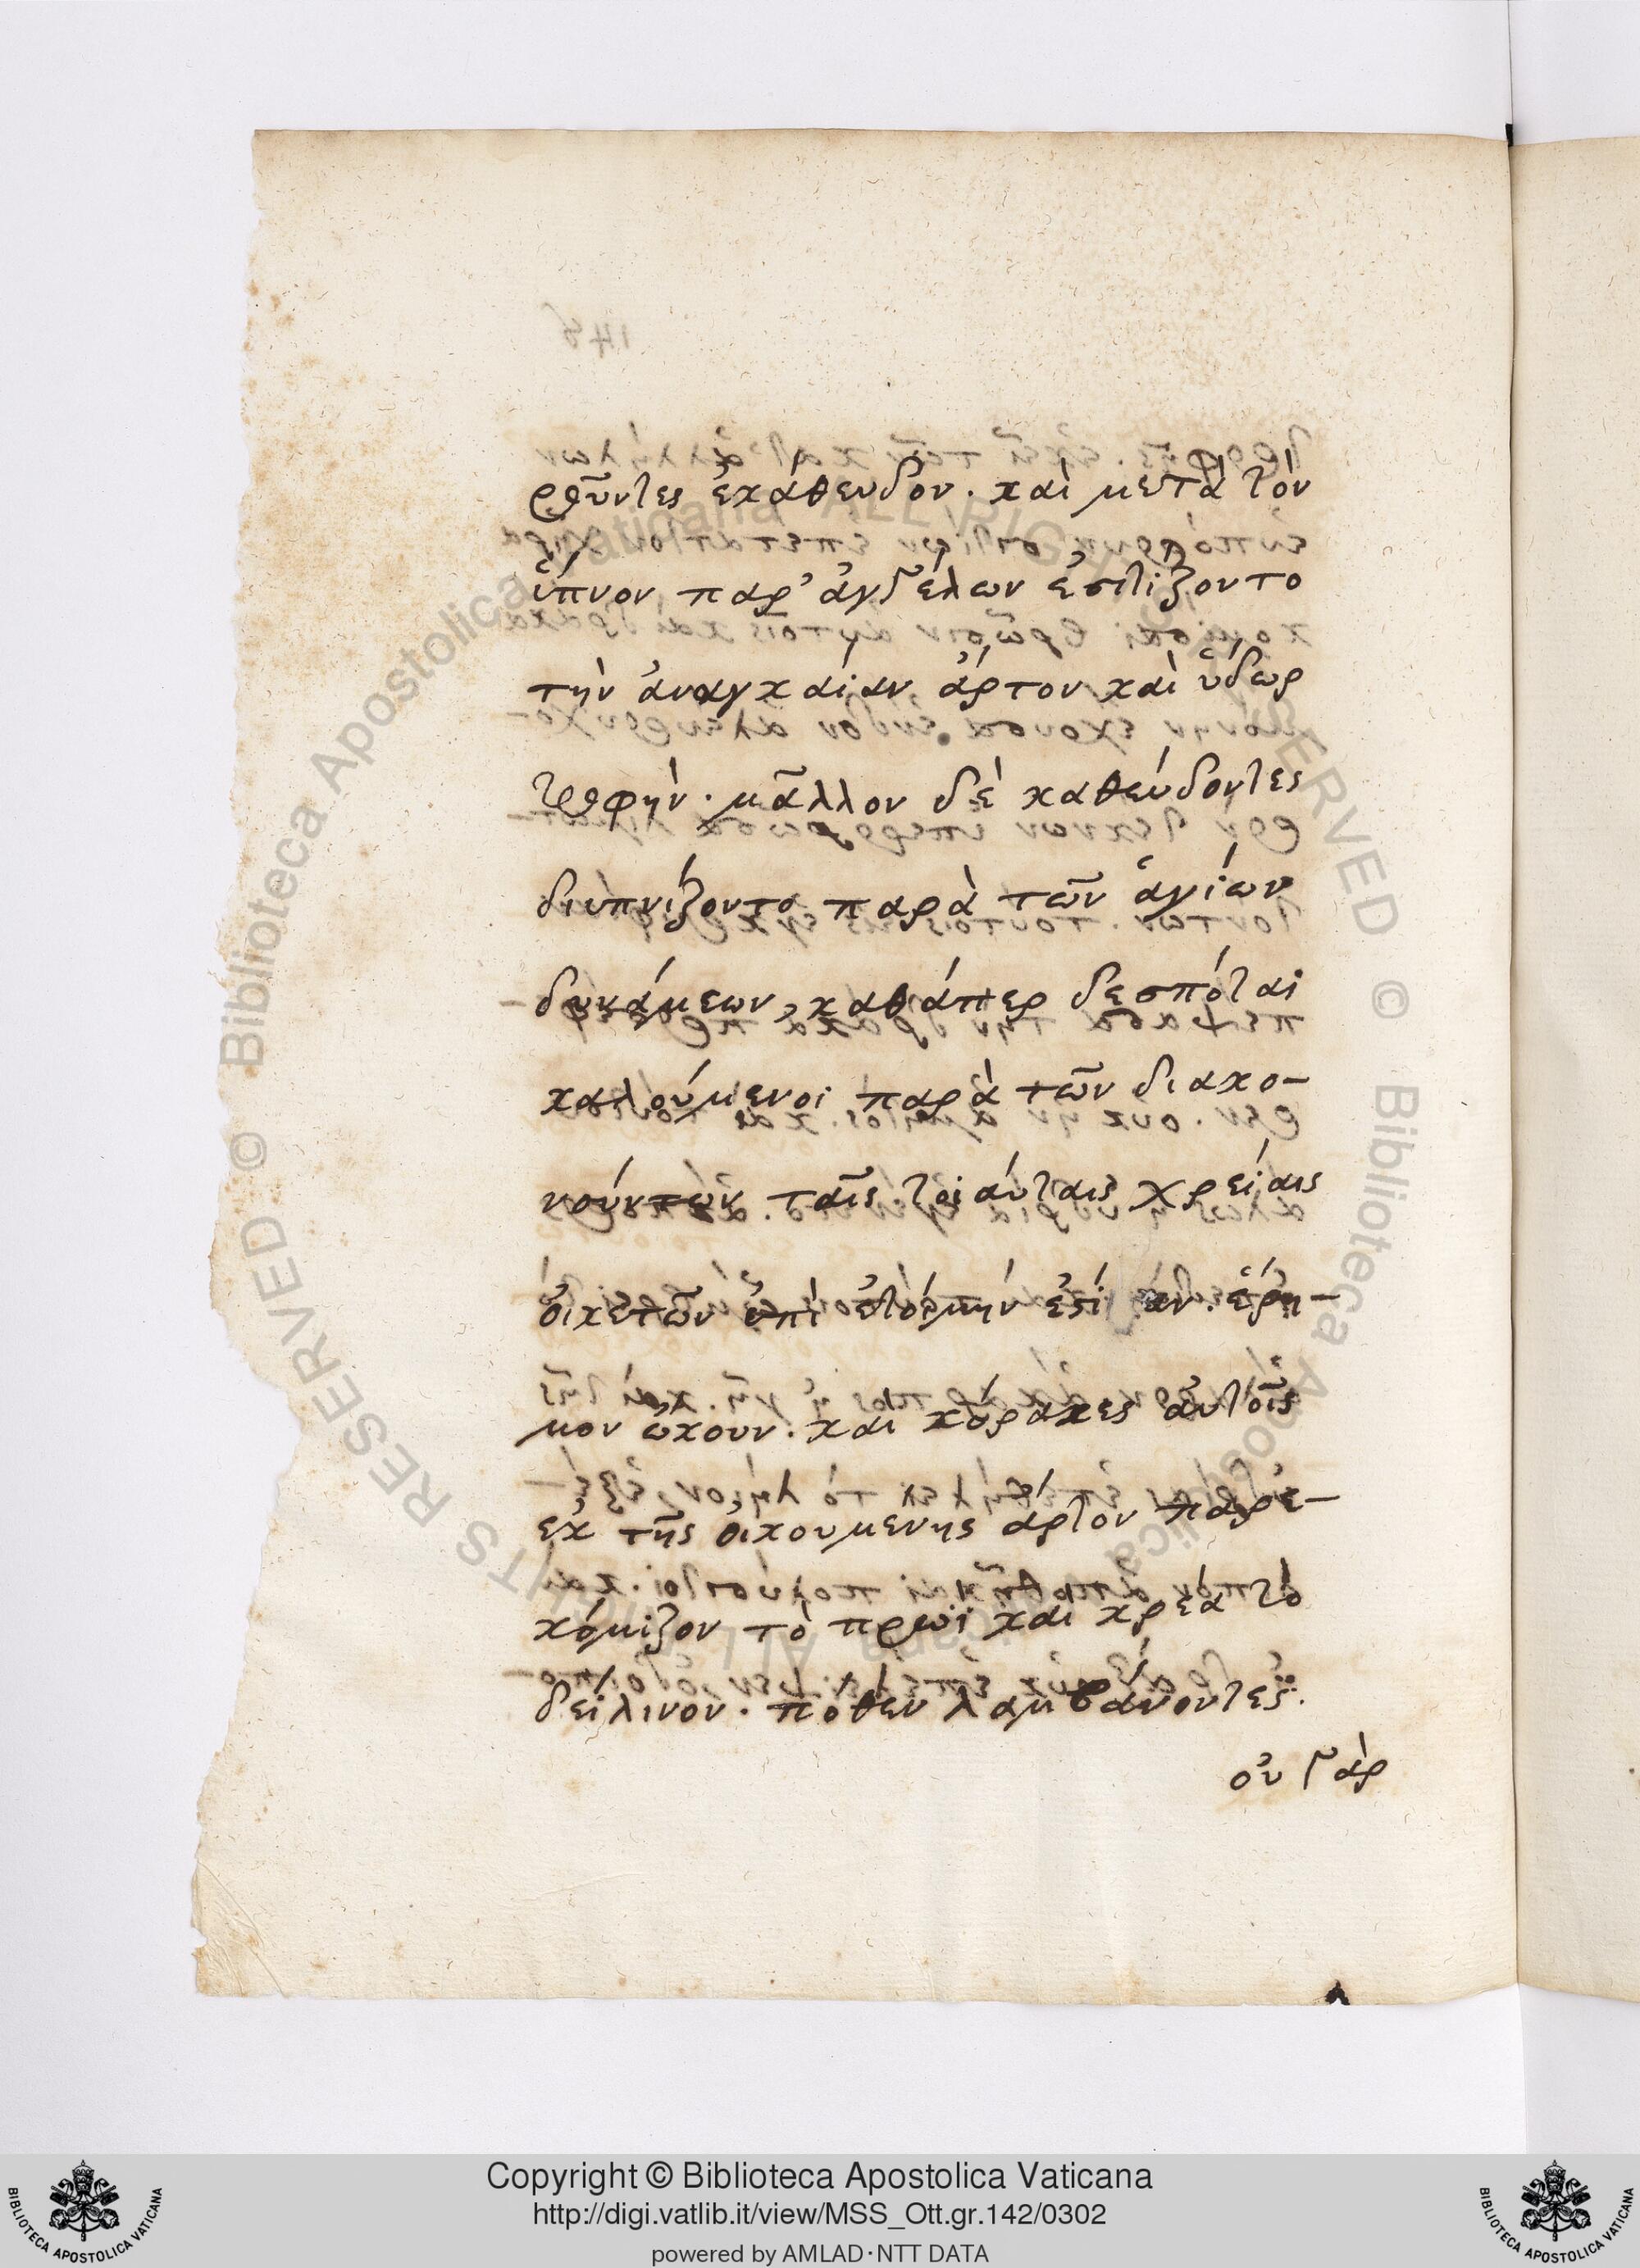 ροῦντες ἐκάθευδον. καὶ μετὰ τὸν
ὕπνον παρ' ἀγγέλων ἐσιτίζοντο
τὴν ἀναγκαίαν ἄρτον καὶ ὕδωρ
τροφὴν. μᾶλλον δὲ καθεύδοντες
διυπνίζοντο παρὰ τῶν ἁγίων
δυνάμεων, καθάπερ δεσπόται
καλούμενοι παρὰ τῶν διακο-
νούντων ταῖς τοιαύταις χρείαις
οἰκετῶν ἐπὶ ἑτοίμην ἑστίαν. ἔρη-
μον ᾤκουν. καὶ κόρακες αὐτοῖς
ἐκ τῆς οἰκουμένης ἄρτον παρε-
κόμιζον τὸ πρωὶ καὶ κρέα τὸ
δείλινον. πόθεν λαμβάνοντες.
οὐ γὰρ
Copyright © Biblioteca Apostolica Vaticana
http://digi.vatlib.it/view/MSS_Ott.gr.142/0302
powered by AMLAD·NTT DATA